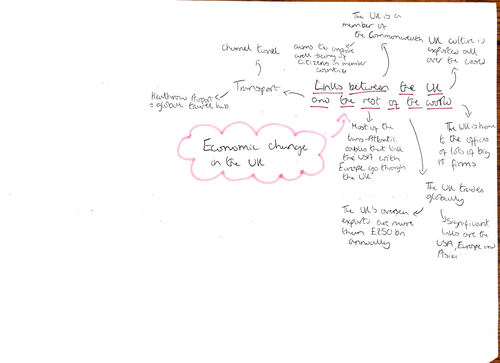 The UK is a
member of
the Commonwealth
aims to improve
well-being of
citizens in member
countries
UK culture is
exported all
over the world
Channel tunnel
Transport
Heathrow Airport
= global travel hub
Links between the UK
and the rest of the world
Economic change
in the UK
Most of the
trans-Atlantic
cables that link
the USA with
Europe go through
the UK
The UK is home
to the offices
of lots of big
IT firms
The UK trades
globally
The UK's overseas
exports are more
than £250 bn
annually
significant
links are the
USA, Europe and
Asia